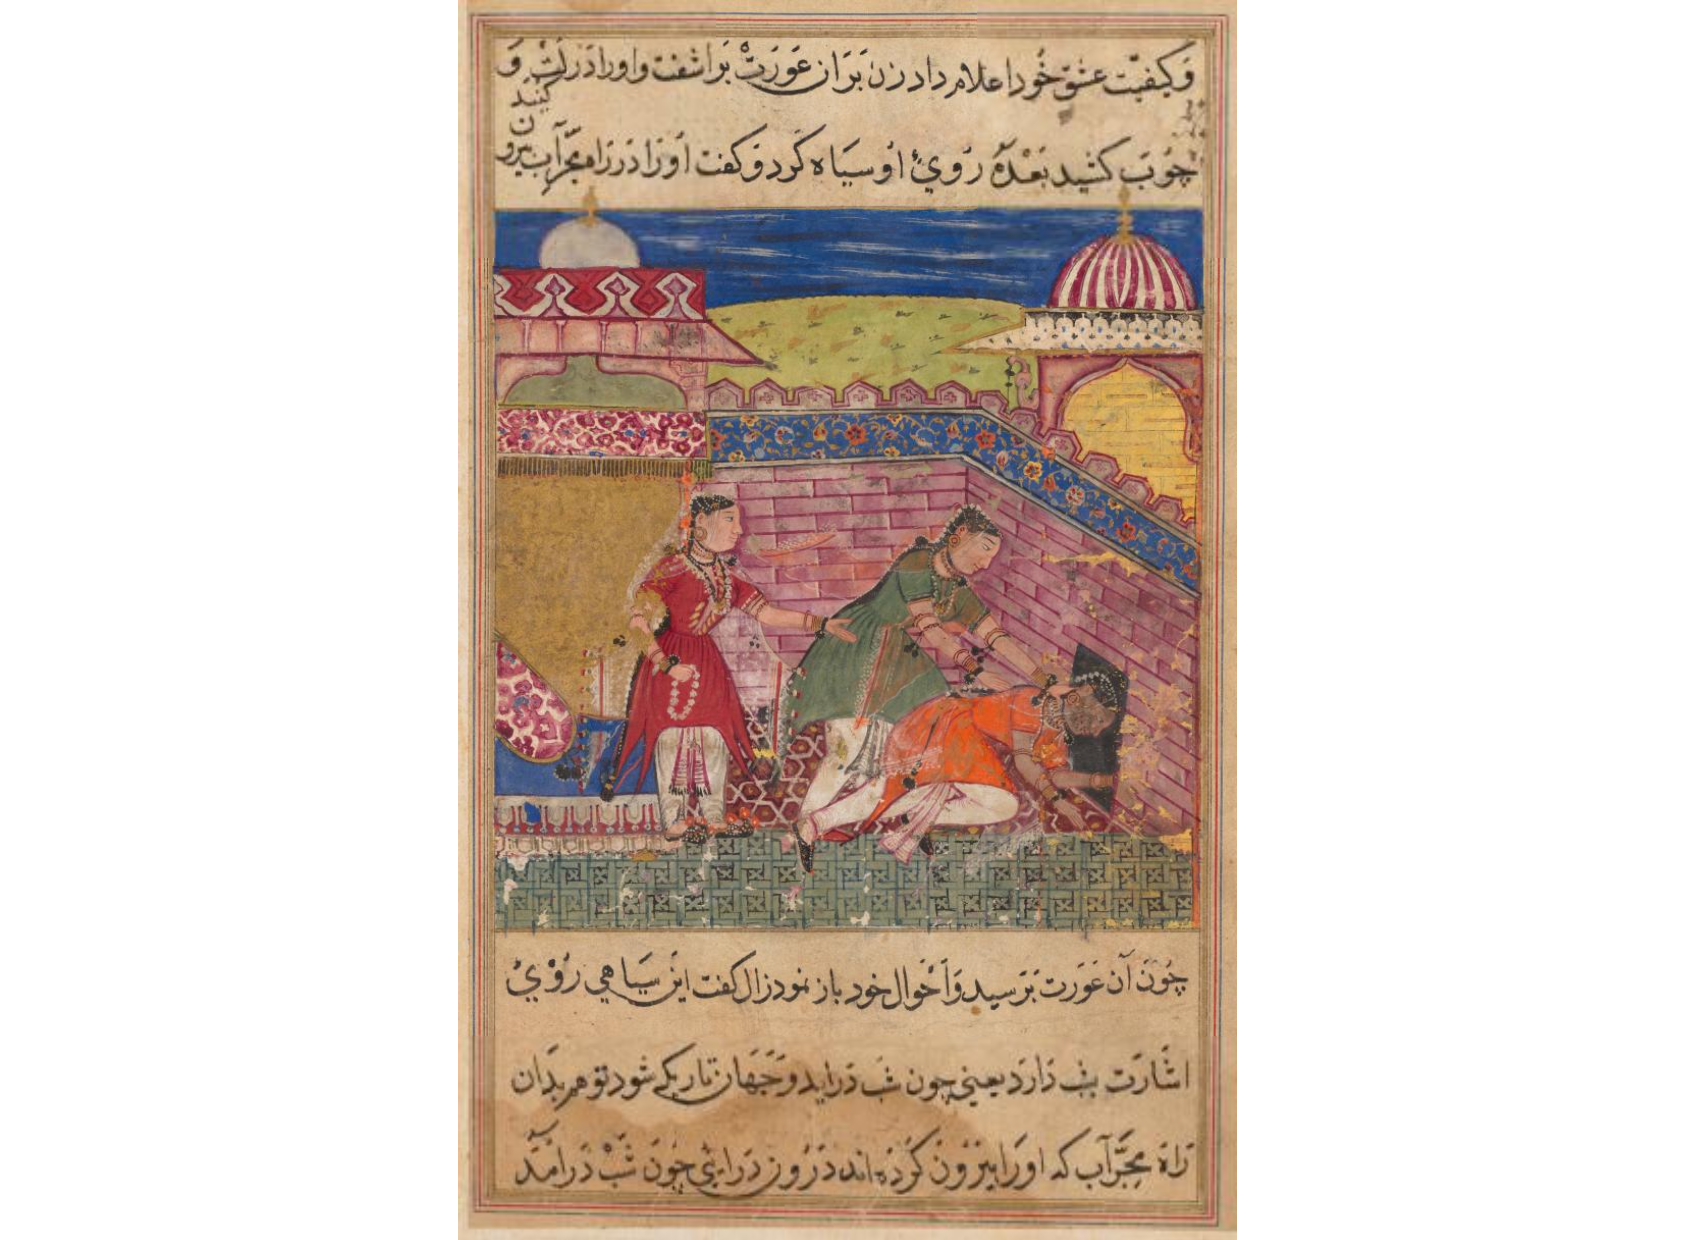 وَکیفیّت عشقِ خُود اعلام داد زن بَرَان عَورَتْ بَر اشفت و اورا دَر لَتْ وَ
چُوبْ کشید بَعْدَهُ رُویْ اُو سیَاه کَرد وَ کفت اُورَا دَر رَاه مجرَآب بیرون کنید
چُونَ آن عَورَت بَرَسید وَاَحْوال خود باز نمود زال کفت اینْ سیَاهی رُوْیْ
اشَارَت بشب دَارَد یعنی چون شب دَرَاید وَجَهَان تاریک شود تو هم بدَان
رَاهَ مجرَآب که اورَا بیرُون کَردَه اند دَرُون دَرَایی چُونَ شَبْ دَرآمَد